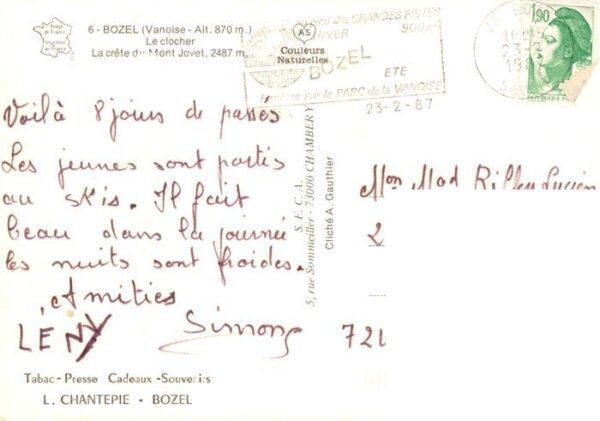 Image de France
Imprimé en France
6 - BOZEL (Vanoise - Alt. 870 m.)
Le clocher
La crête du Mont Jovet, 2487 m.
AS
Couleurs Naturelles
des GRANDES PISTES
HIVER 900 m
BOZEL
ETE
Fenêtre sur le PARC de la VANOISE
23-2-87
1,90
Voilà 8 jours de passés
Les jeunes sont partis
au skis. Il fait
beau dans la journée
les nuits sont froides.
Amitiés
LENY Simone
S.E.C.A.
5, rue Sommeiller - 73000 CHAMBERY
Cliché A. Gauthier
Mon Mad Lucien
2
721
Tabac-Presse Cadeaux-Souvenirs
L. CHANTEPIE - BOZEL